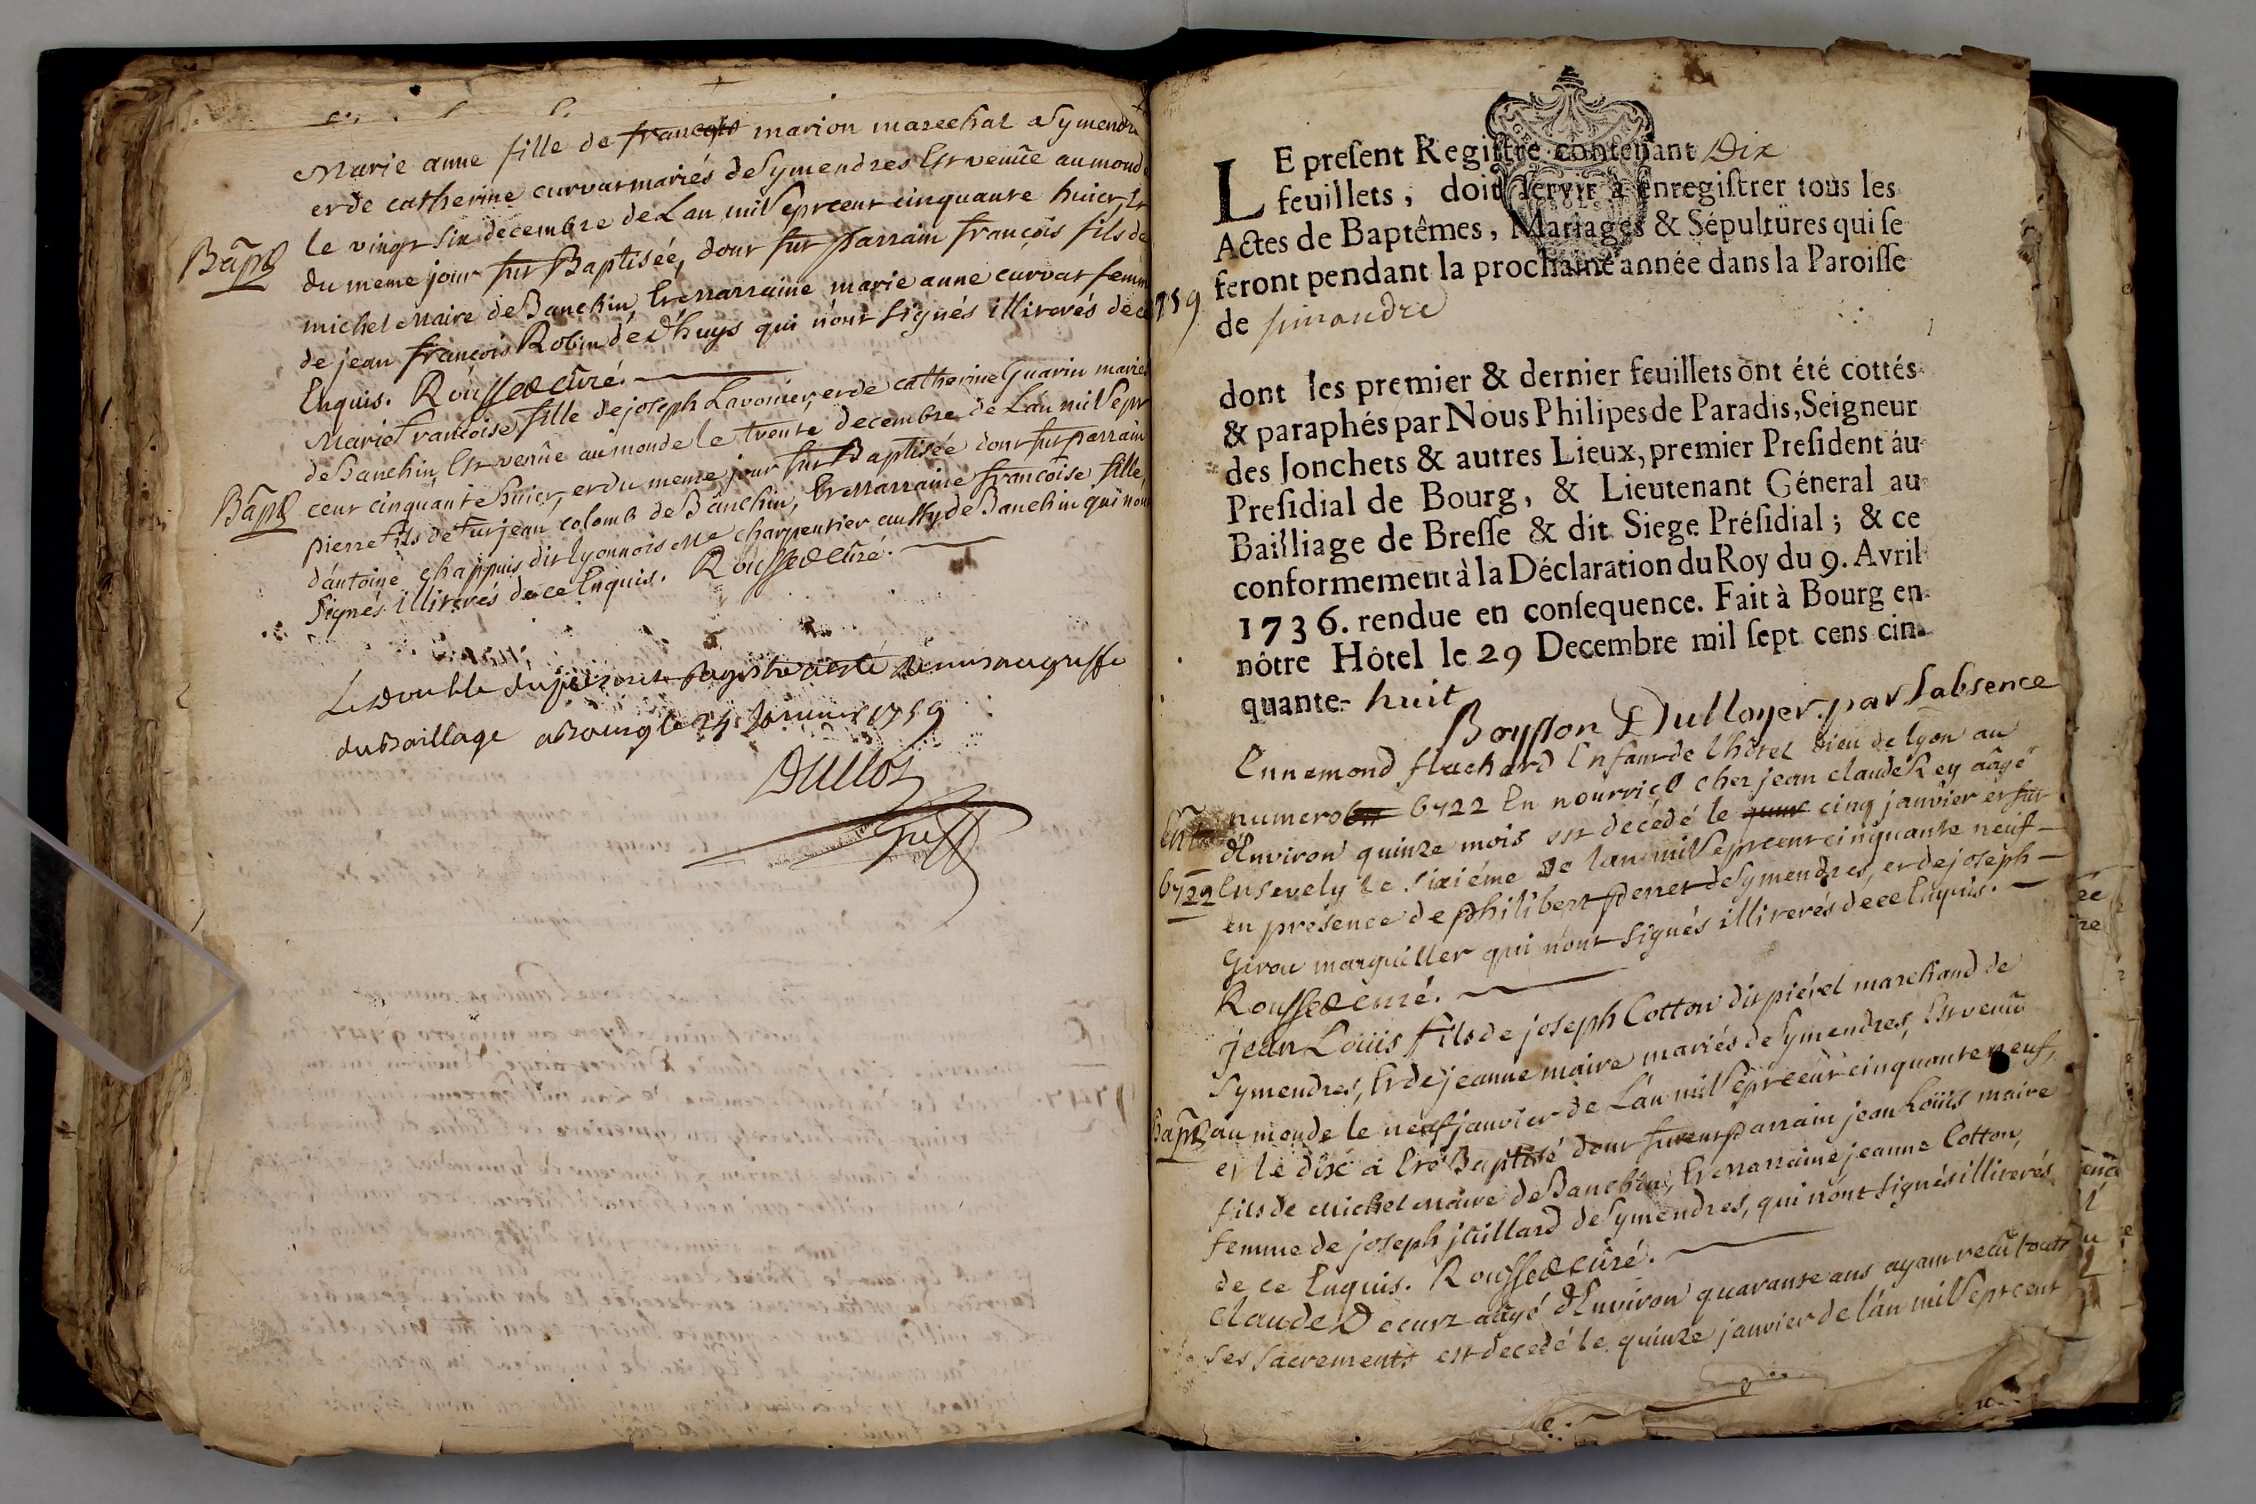 Marie anne fille de francois marion marechal a Symendre
et de catherine curvat mariés de Symendres Est venûe au monde
le vingt six decembre de Lan mil Sept cent cinquante huict, Et
Bapt
du meme jour fut Baptisée, dont fut parrain françois fils de
michel Maire de Banchin, Et marraine marie anne curvat femme
de jean françois Robin de Dhuys qui n'ont signés illiterés de ce
Enquis. Roussed curé.
Marie francoise fille de joseph Lavonier, et de catherine Guarin mariés
de Banchin, Est venûe au monde le trente decembre de Lan mil Sept
Bapt
cent cinquante huict, et du meme jour fut Baptisée dont fut parrain
pierre fils de fut jean colomb de Banchin, Et marraine francoise fille
d'antoine chappuis dit lyonnois Me charpentier aussy de Banchin qui n'ont
signés illiterés de ce Enquis. Roussed curé.
Le double du present Registre a esté remis au greffe
du Baillage a Bourg le 24 Janvier 1759
Dullot
Greff
LE present Registre contenant Dix
feuillets, doit servir à enregistrer tous les
Actes de Baptêmes, Mariages & Sépultures qui se
feront pendant la prochaine année dans la Paroisse
1759
de simandre
dont les premier & dernier feuillets ont été cottés
& paraphés par Nous Philipes de Paradis, Seigneur
des Jonchets & autres Lieux, premier President au
Presidial de Bourg, & Lieutenant Géneral au
Bailliage de Bresse & dit Siege Présidial ; & ce
conformement à la Déclaration du Roy du 9. Avril
1736. rendue en consequence. Fait à Bourg en
nôtre Hôtel le 29 Decembre mil sept cens cin-
quante- huit
Boysson Dulloyer. par l'absence
Ennemond flachard Enfant de l'hôtel dieu de lyon au
numero 6722 En nourrice chez jean claude Rey aâgé
d'Environ quinze mois est decédé le cinq janvier et fut
6722
Ensevely le sixiéme de lan mil Sept cent cinquante neuf
en présence de philibert perret de Symendres, et de joseph
Girou marguiller qui n'ont signés illiterés de ce Enquis.
Roussed curé.
jean Loüis fils de joseph Cotton dit piérel marchand de
Symendres, Et de jeanne maire mariés de Symendres, Est venû
Bapt
au monde le neuf janvier de L'an mil Sept cent cinquante neuf,
et le dix a Eté Baptisé dont furent parrain jean Loüis maire
fils de Michel Maire de Banchin, Et marraine jeanne Cotton,
femme de joseph jüillard de Symendres, qui n'ont signés illiterés
de ce Enquis. Roussed curé.
Claude Decurz aâgé d'Environ quarante ans ayant recû touts
ses sacrements est decedé le quinze janvier de l'an mil Sept cent